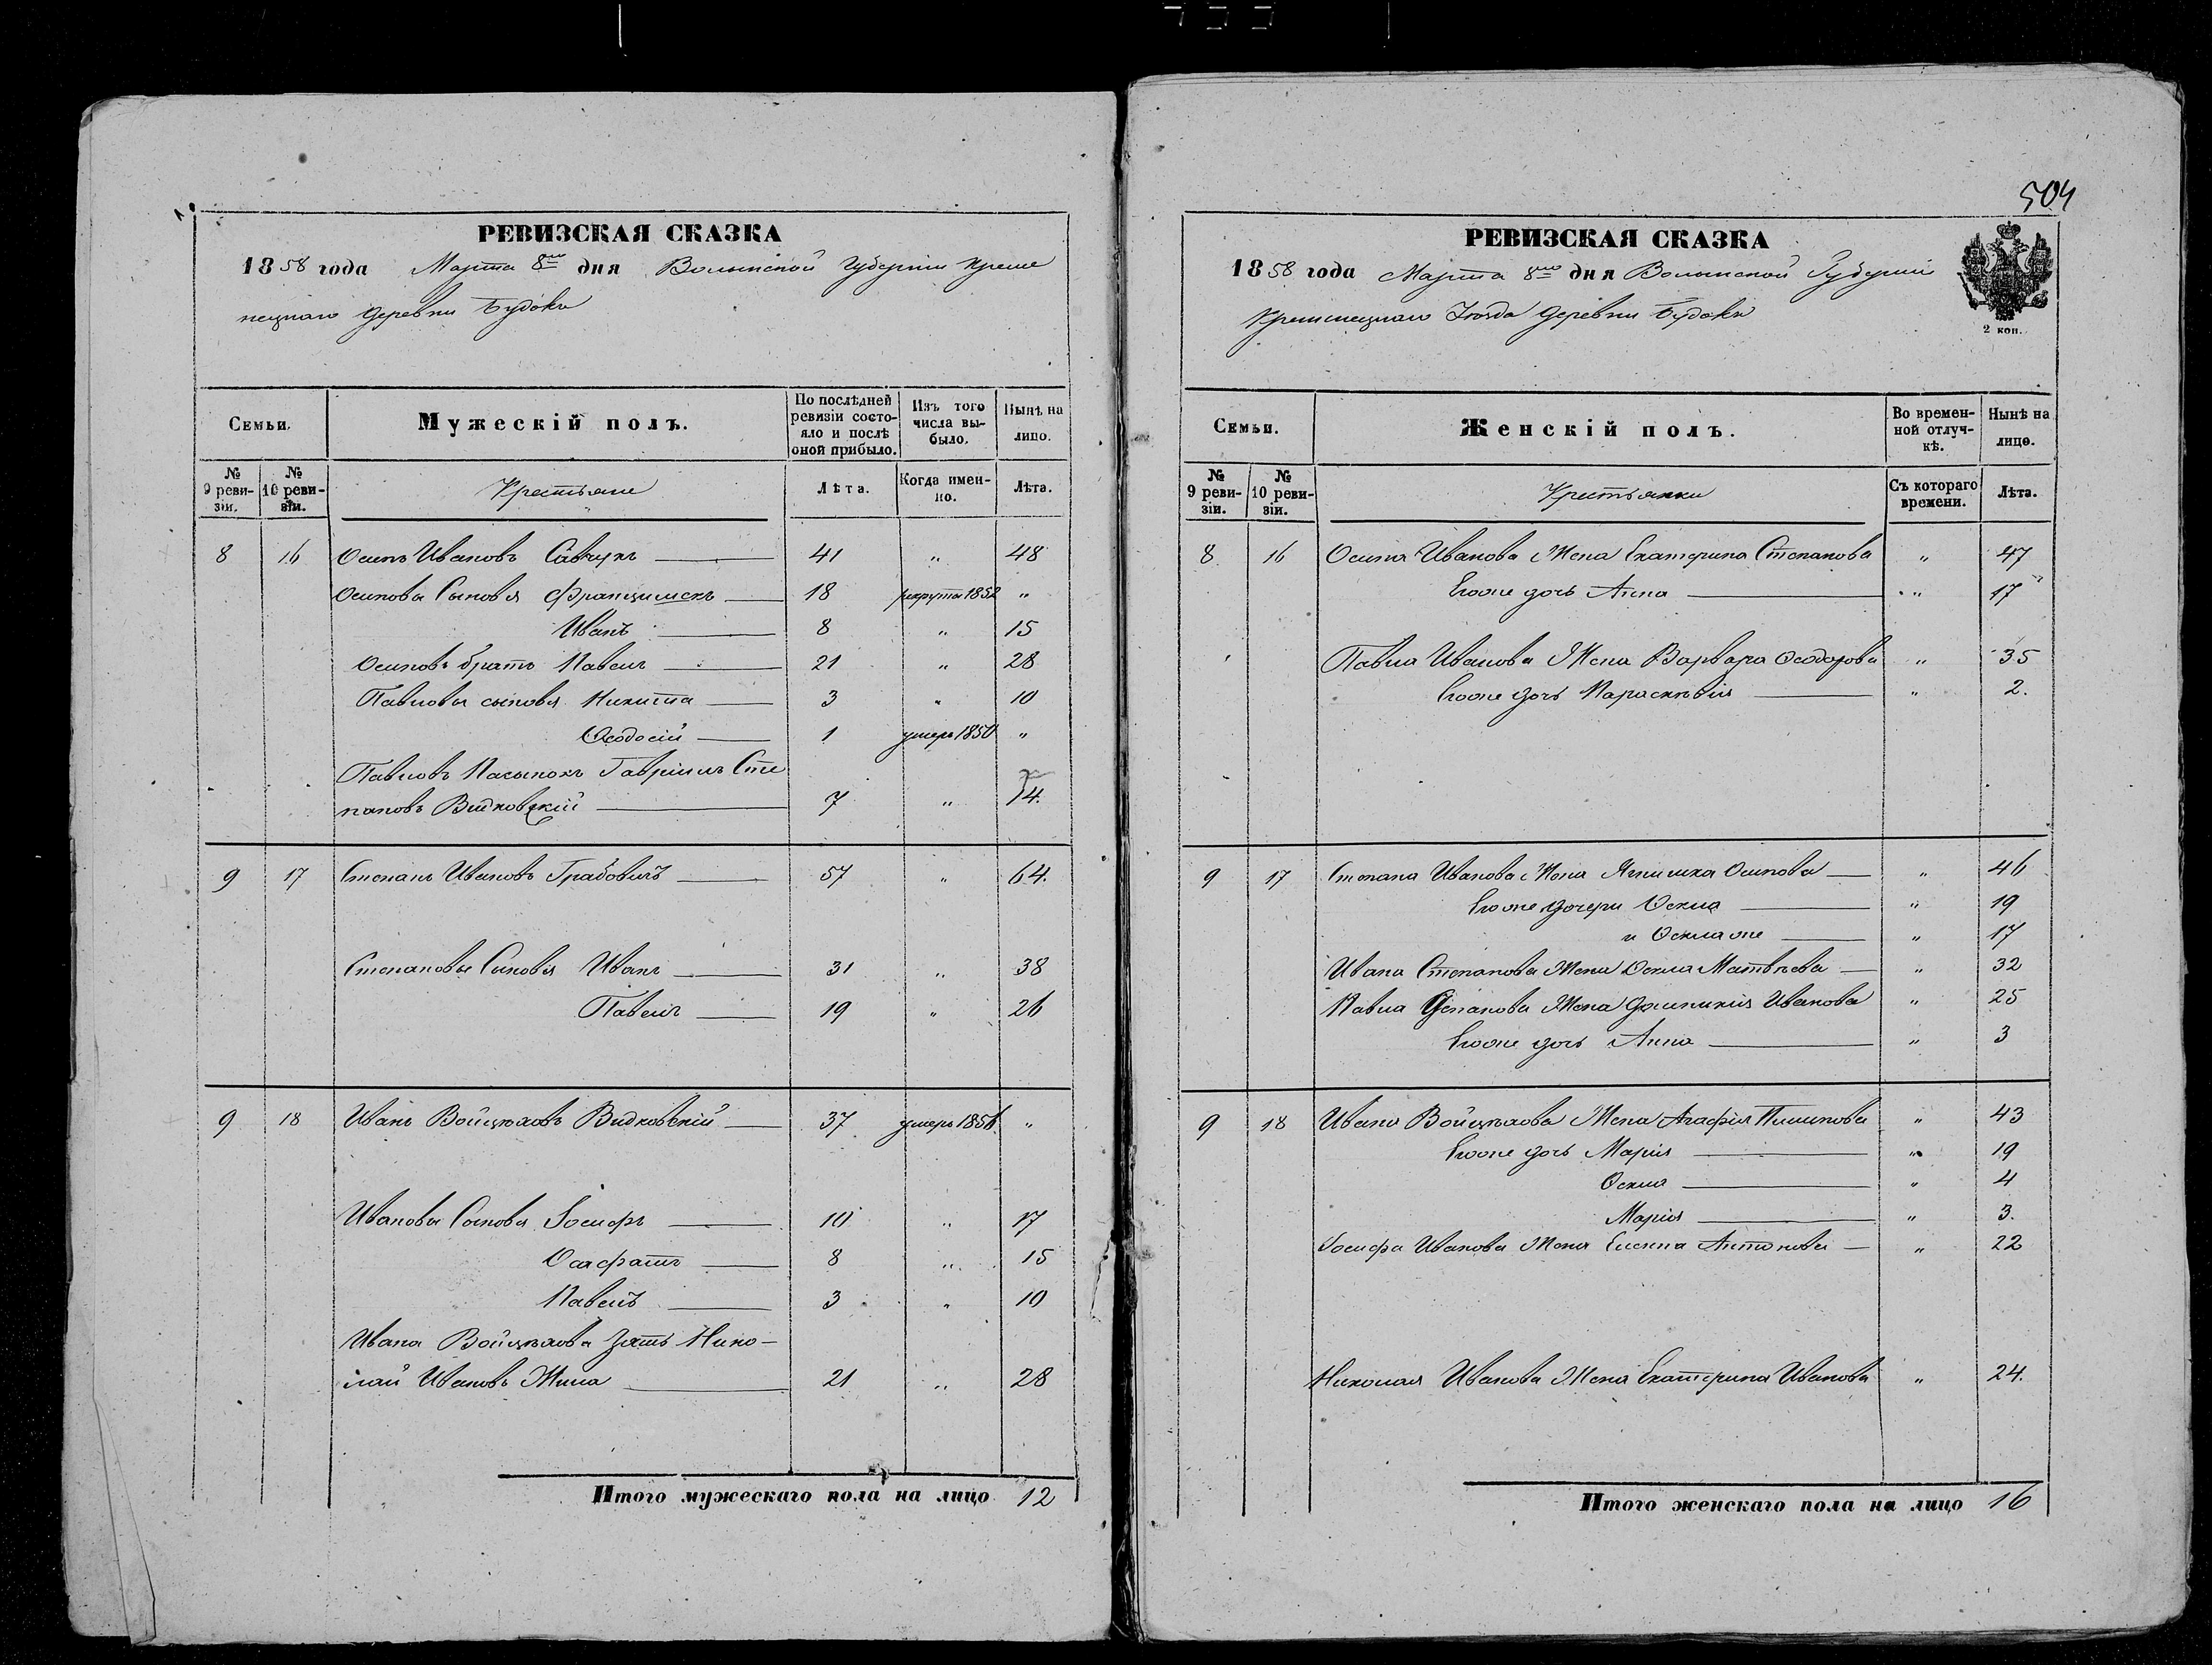 РЕВИЗСКАЯ СКАЗКА
1858 года Марта 8го дня Волынской Губернии Креме
нецкаго деревни Будокъ
Семьи.
Мужескій полъ.
По послѣдней ревизіи состояло и послѣ оной прибыло.
Изъ того числа выбыло.
Нынѣ на лицо.
№ 9 ревизіи.
№ 10 ревизіи.
Крестьяне
Лѣта.
Когда именно.
Лѣта.
8 16 Осипъ Ивановъ Савчукъ 41 " 48
Осиповы Сыновья Францишекъ 18 рекрутъ 1852 "
Иванъ 8 " 15
Осиповъ братъ Павелъ 21 " 28
Павловы сыновья Никита 3 " 10
Ѳеодосій 1 умеръ 1850 "
Павловъ Пасынокъ Гавріилъ Сте
пановъ Видковскій 7 " 14.
9 17 Степанъ Ивановъ Грабовичъ 57 " 64.
Степановы Сыновья Иванъ 31 " 38
Павелъ 19 " 26
9 18 Иванъ Войцѣховъ Видковскій 37 умеръ 1856. "
Ивановы Сыновья Іосифъ 10 " 17
Осафатъ 8 " 15
Павелъ 3 " 10
Ивана Войцѣхова Зять Нико-
лай Ивановъ Жила 21 " 28
Итого мужескаго пола на лицо 12
504
РЕВИЗСКАЯ СКАЗКА
1858 года Марта 8го дня Волынской Губерніи
Кременецкаго Уѣзда деревни Будокъ
2 коп.
Семьи.
Женскій полъ.
Во временной отлучкѣ.
Нынѣ на лицо.
№ 9 ревизіи.
№ 10 ревизіи.
Крестьянки
Съ котораго времени.
Лѣта.
8 16 Осипа Иванова Жена Екатерина Степанова " 47
Егоже дочь Анна " 17
Павла Иванова Жена Варвара Ѳеодорова " 35
Егоже дочь Параскѣвія " 2.
9 17 Степана Иванова Жена Ягнишка Осипова " 46
Егоже дочери Ѳекла " 19
и Ѳекла же " 17
Ивана Степанова Жена Ѳекла Матвѣева " 32
Павла Степанова Жена Доминикія Иванова " 25
Егоже дочь Анна " 3
9 18 Ивана Войцѣхова Жена Агафія Пилипова " 43
Егоже дочь Марія " 19
Ѳекла " 4
Марія " 3.
Іосифа Иванова Жена Елена Антонова " 22
Николая Иванова Жена Екатерина Иванова " 24.
Итого женскаго пола на лицо 16